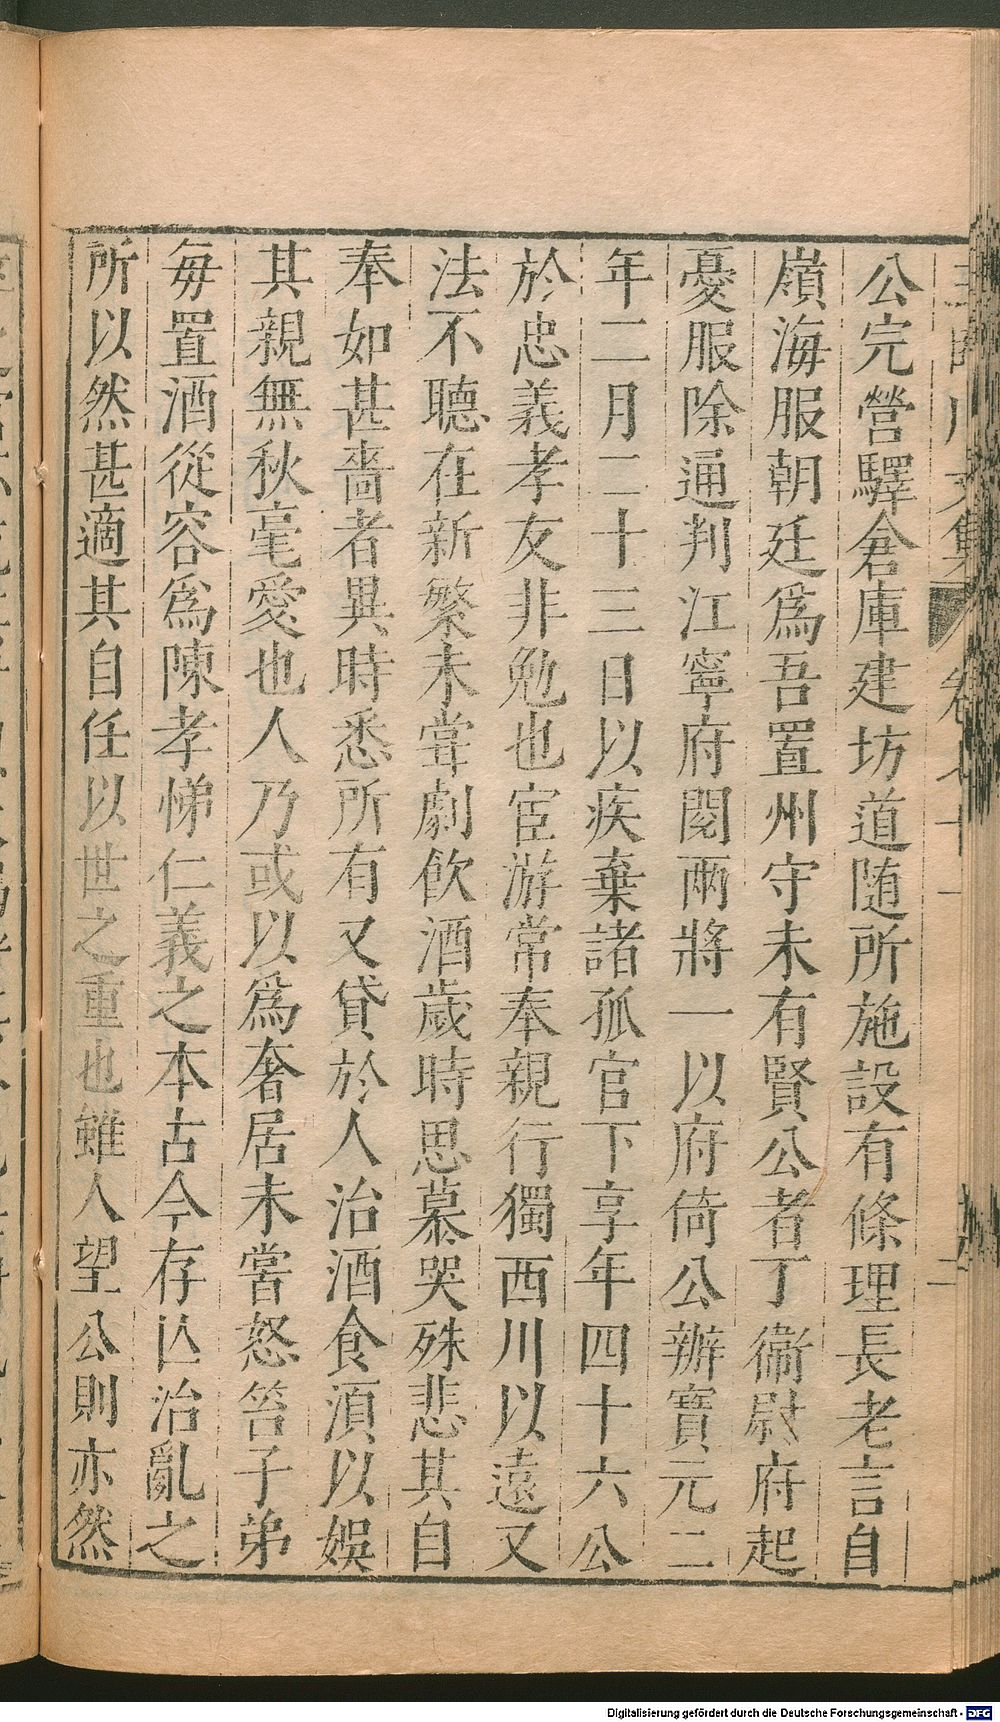 公完營驛倉庫建坊道随所施設有條理長老言自
嶺海服朝廷爲吾置州守未有賢公者丁衞尉府起
憂服除通判江寧府閱兩將一以府倚公辦寶元二
年二月二十三日以疾棄諸孤官下享年四十六公
於忠義孝友非勉也宦游常奉親行獨西川以遠又
法不聽在新繁未甞劇飲酒歲時思慕哭殊悲其自
奉如甚嗇者異時悉所有又貸於人治酒食湏以娛
其親無秋毫愛也人乃或以爲奢居未嘗怒笞子弟
每置酒從容爲陳孝悌仁義之本古今存亾治亂之
所以然甚適其自任以世之重也雖人望公則亦然
Digitalisierung gefördert durch die Deutsche Forschungsgemeinschaft - DFG